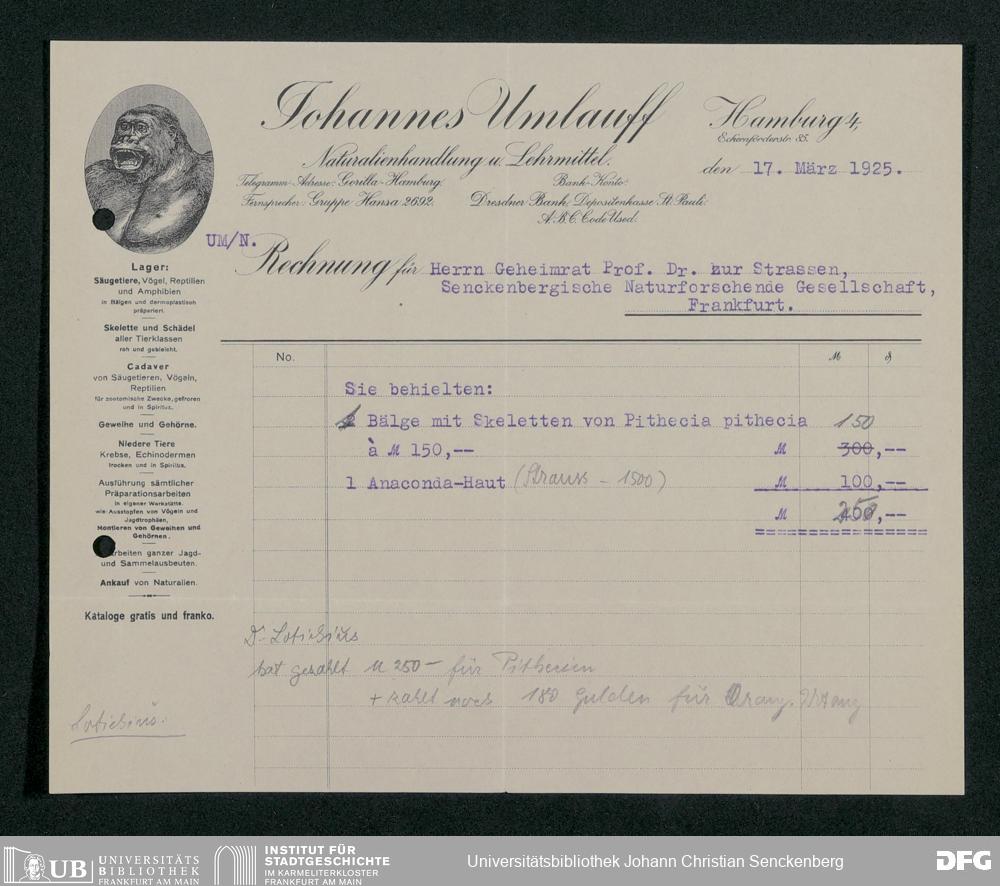 Johannes Umlauff
Naturalienhandlung u. Lehrmittel.
Telegramm-Adresse: Gorilla-Hamburg.
Fernsprecher: Gruppe Hansa 2692.
Bank-Konto:
Dresdner Bank, Depositenkasse St. Pauli.
A.B.C. Code Used.
Hamburg 4,
Eckernförderstr. 85.
den 17. März 1925.
UM/N.
Rechnung für Herrn Geheimrat Prof. Dr. zur Strassen,
Senckenbergische Naturforschende Gesellschaft,
Frankfurt.
Lager:
Säugetiere, Vögel, Reptilien
und Amphibien
in Bälgen und dermoplastisch
präpariert.
Skelette und Schädel
aller Tierklassen
roh und gebleicht.
Cadaver
von Säugetieren, Vögeln,
Reptilien
für zootomische Zwecke, gefroren
und in Spiritus.
Geweihe und Gehörne.
Niedere Tiere
Krebse, Echinodermen
trocken und in Spiritus.
Ausführung sämtlicher
Präparationsarbeiten
in eigener Werkstätte.
wie: Ausstopfen von Vögeln und
Jagdtrophäen,
Montieren von Geweihen und
Gehörnen.
arbeiten ganzer Jagd-
und Sammelausbeuten.
Ankauf von Naturalien.
Kataloge gratis und franko.
No. M ₰
Sie behielten:
Bälge mit Skeletten von Pithecia pithecia 150
à M 150,-- M 300,--
1 Anaconda-Haut (Strauss - 1500) M 100,--
M 250,--
Dr. Lotichius
hat gezahlt M 250 - für Pithecien
+ zahlt noch 180 Gulden für Orang-Utang
Lotichius.
UB UNIVERSITÄTS
BIBLIOTHEK
FRANKFURT AM MAIN
INSTITUT FÜR
STADTGESCHICHTE
IM KARMELITERKLOSTER
FRANKFURT AM MAIN
Universitätsbibliothek Johann Christian Senckenberg
DFG